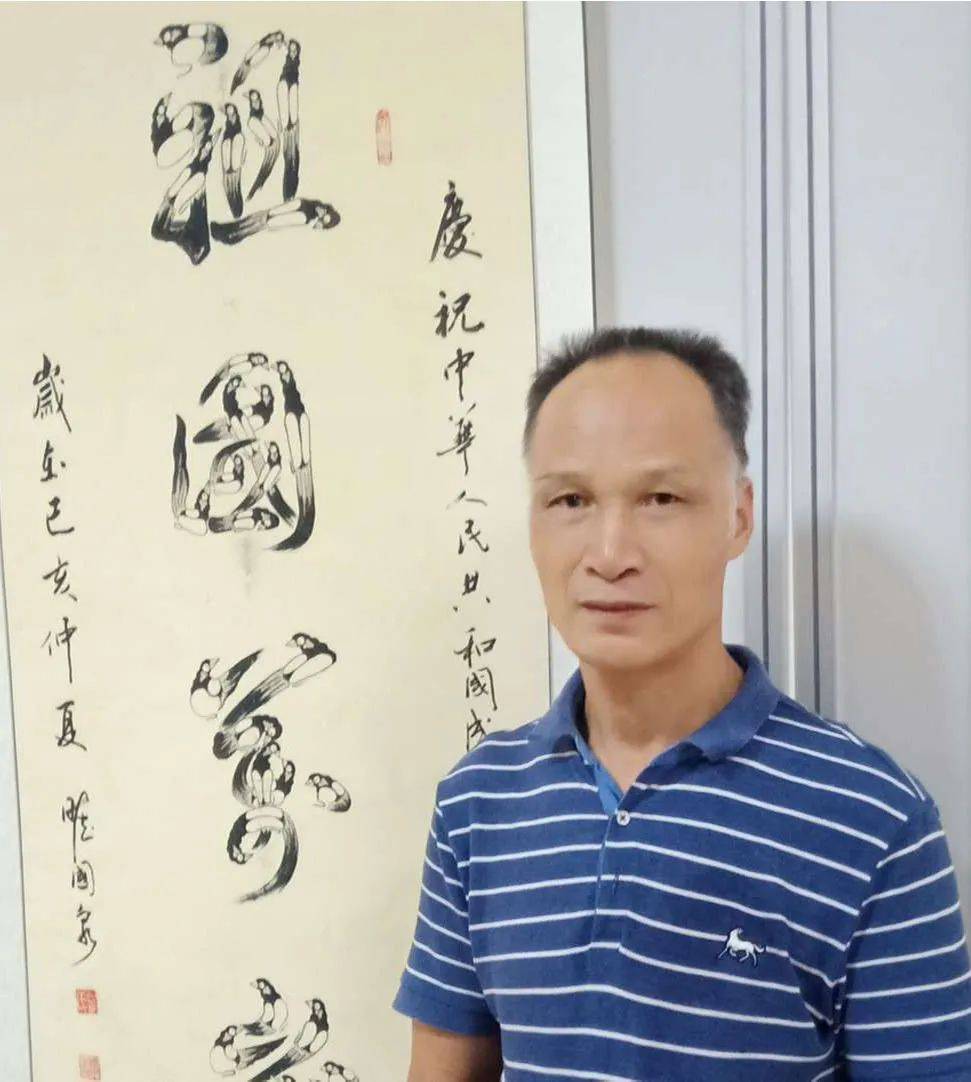 慶祝中華人民共和國成
祖國萬
歲在己亥仲夏 國泉